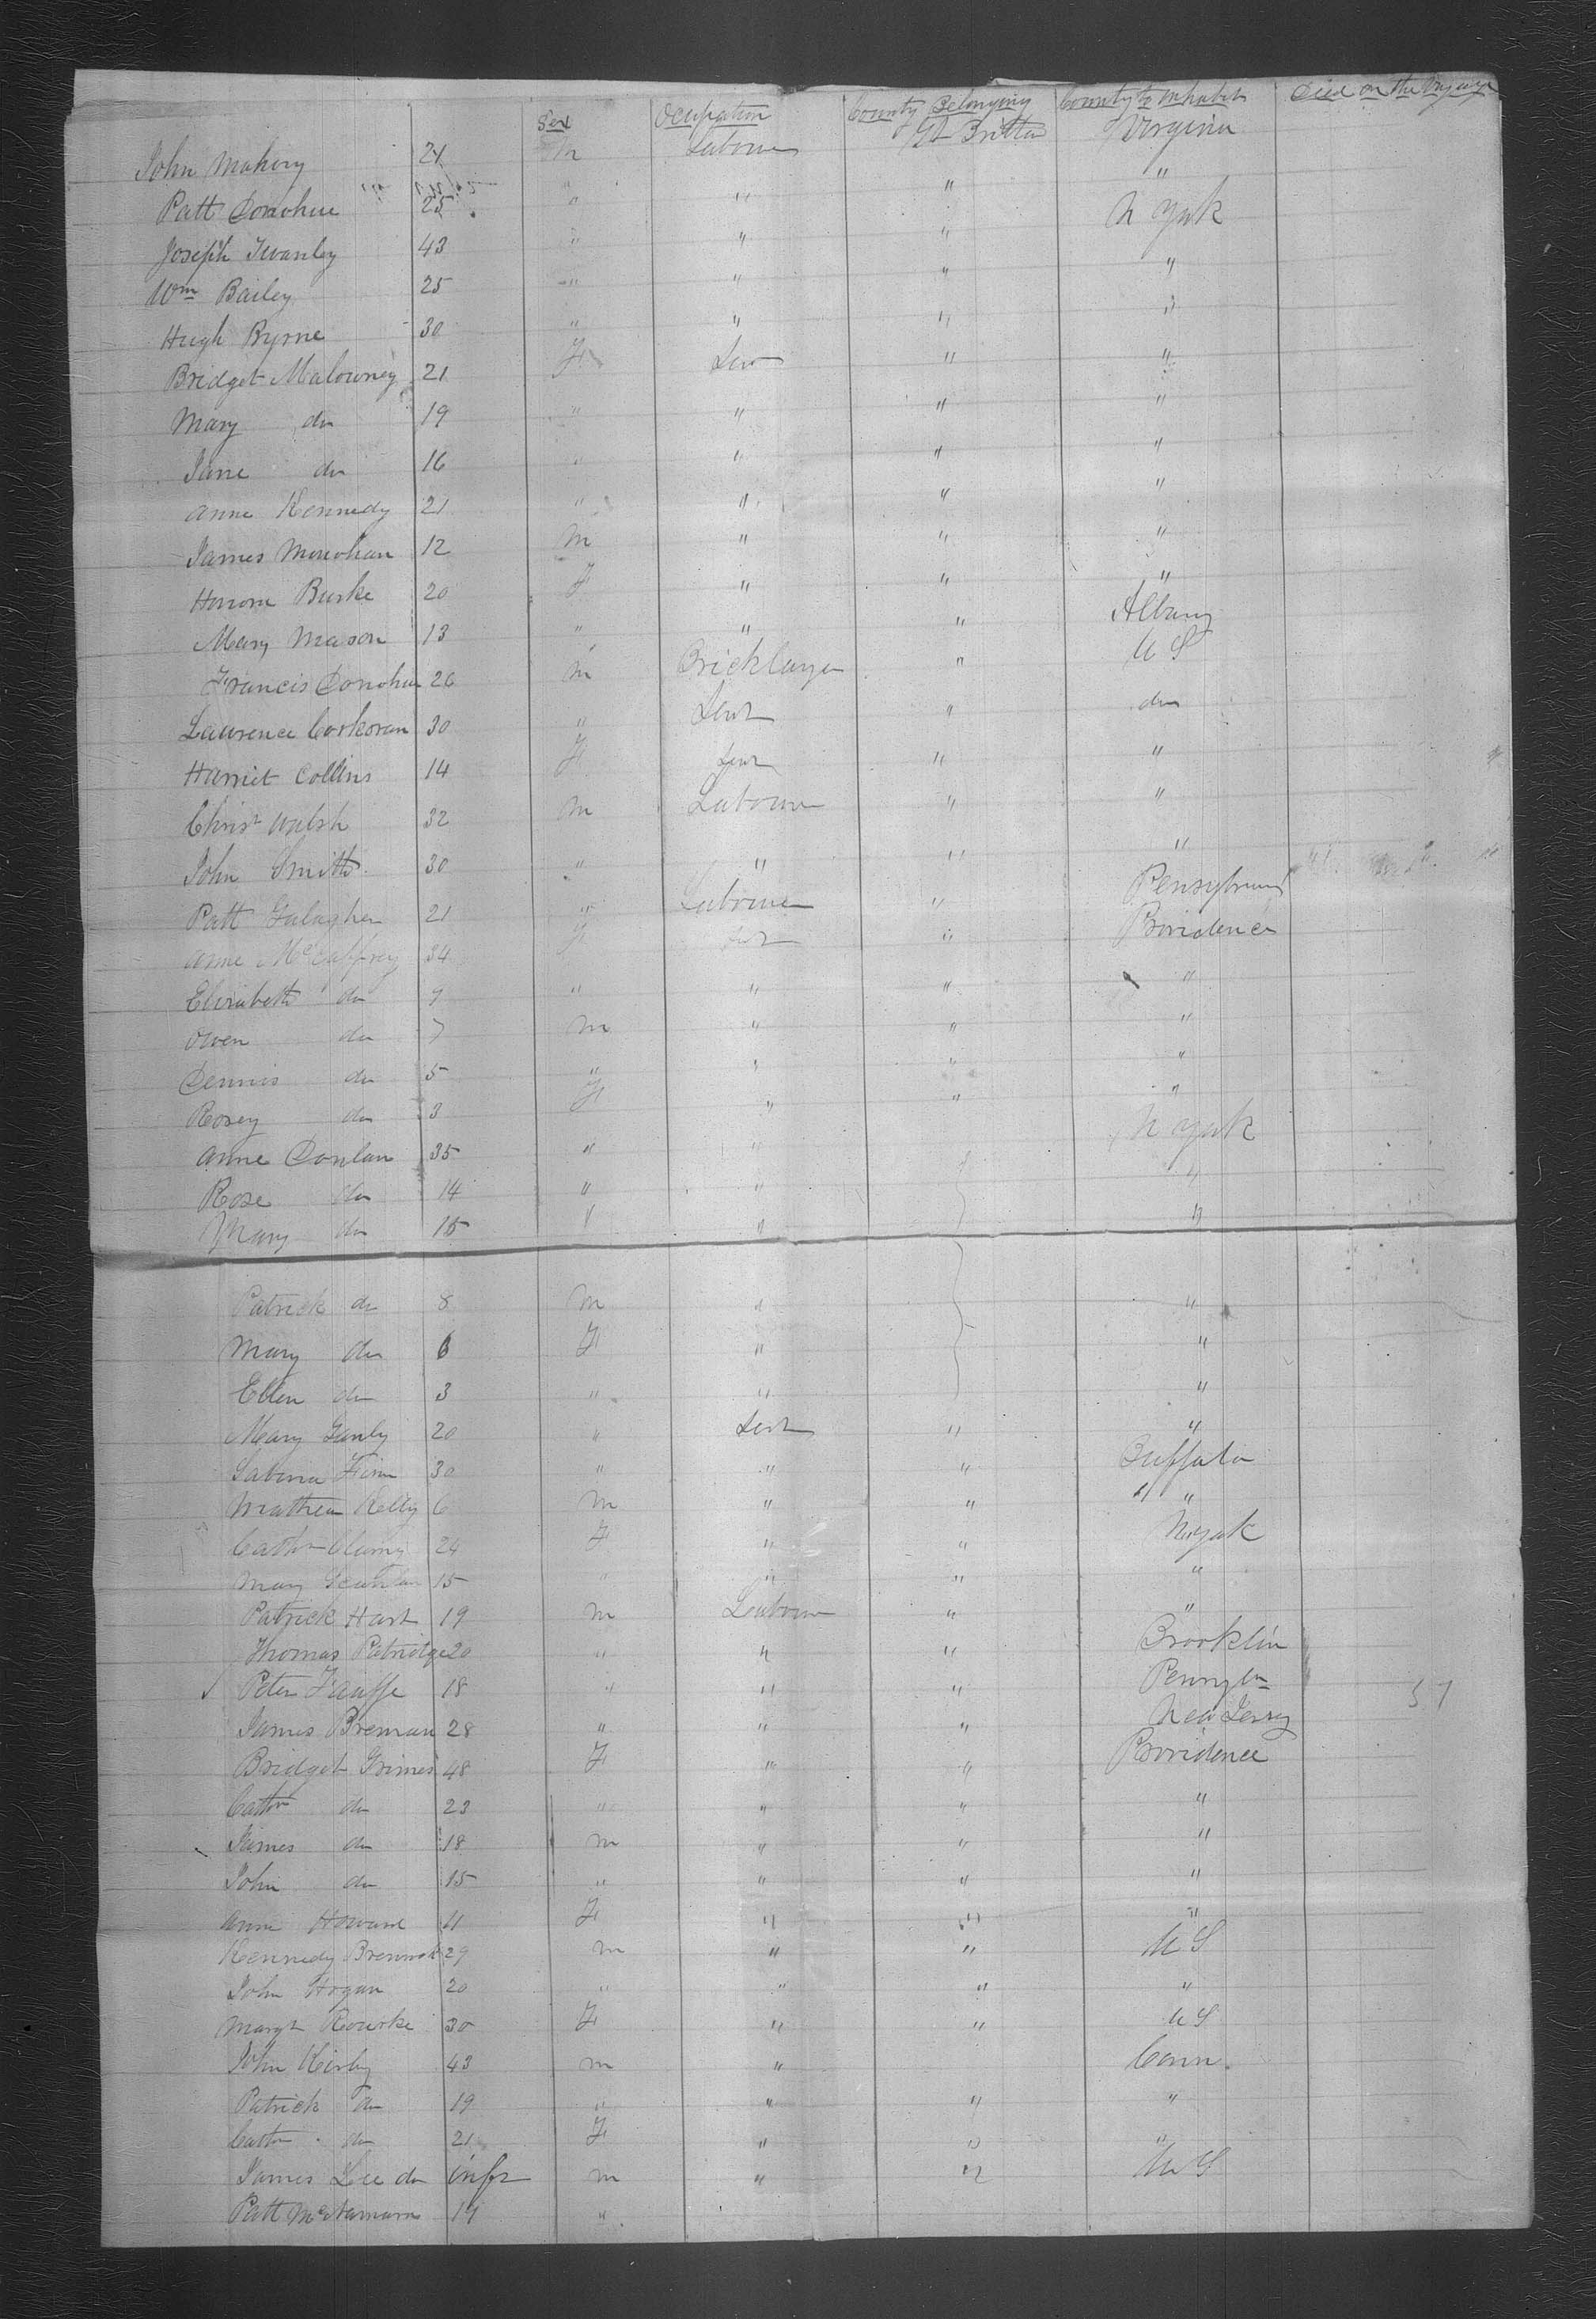 Sex Ocupation County Belonging County to inhabit Died on the Voyage
John Mahony 24 m Labourer Gt Brittan Virginia
Patt Donohue 25 " " " "
Joseph Twanley 43 " " " N York
Wm Bailey 25 " " " "
Hugh Byrne 30 " " " "
Bridget Malowney 21 F " "
Mary do 19 " " " "
Jane do 16 " " " "
Anne Kennedy 21 " " " "
James Monohan 12 m " " "
Honora Burke 20 F " " "
Mary Mason 13 " " " Albany
Francis Donohue 26 m Bricklayer " U S
Lawrence Corkoran 30 " Servt " do
Harriet Collins 14 F Servt " "
Christ Walsh 32 m Labourer " "
John Smith 30 " " " "
Patt Galagher 21 " Labourer "
Anne McCaffrey 34 F Servt " Providence
Elizabeth do 9 " " " "
Owen do 7 m " " "
Dennis do 5 " " " "
Rosey do 3 F " " "
Anne Donlan 35 " " N York
Rose do 14 " " "
Mary do 15 " " "
Patrick do 8 m " "
Mary do 6 F " "
Ellen do 3 " " "
Mary Ganly 20 " Servt " "
Sabina Finn 30 " " " Buffalo
Mathew Kelly 6 m " " " "
24 F " " N York
Mary 15 " " " "
Patrick Hart 19 m Labour " "
Thomas Patridge 20 " " " Brooklin
Peter 18 " " "
James Brenan 28 " " " New Jersey 57
Bridget Grimes 48 F " " Providence
Cathn do 23 " " " "
James do 18 m " " "
John do 15 " " " "
Anne Howard 11 F " " "
Kennedy 29 m " " U S
John Hogan 20 " " " "
Margt Rourke 30 F " " U S
John Kirby 43 m " Conn.
Patrick do 19 " " " "
Cathn do 21 F " " "
James Lee do inft m " " U S
Patt McNamara 19 "